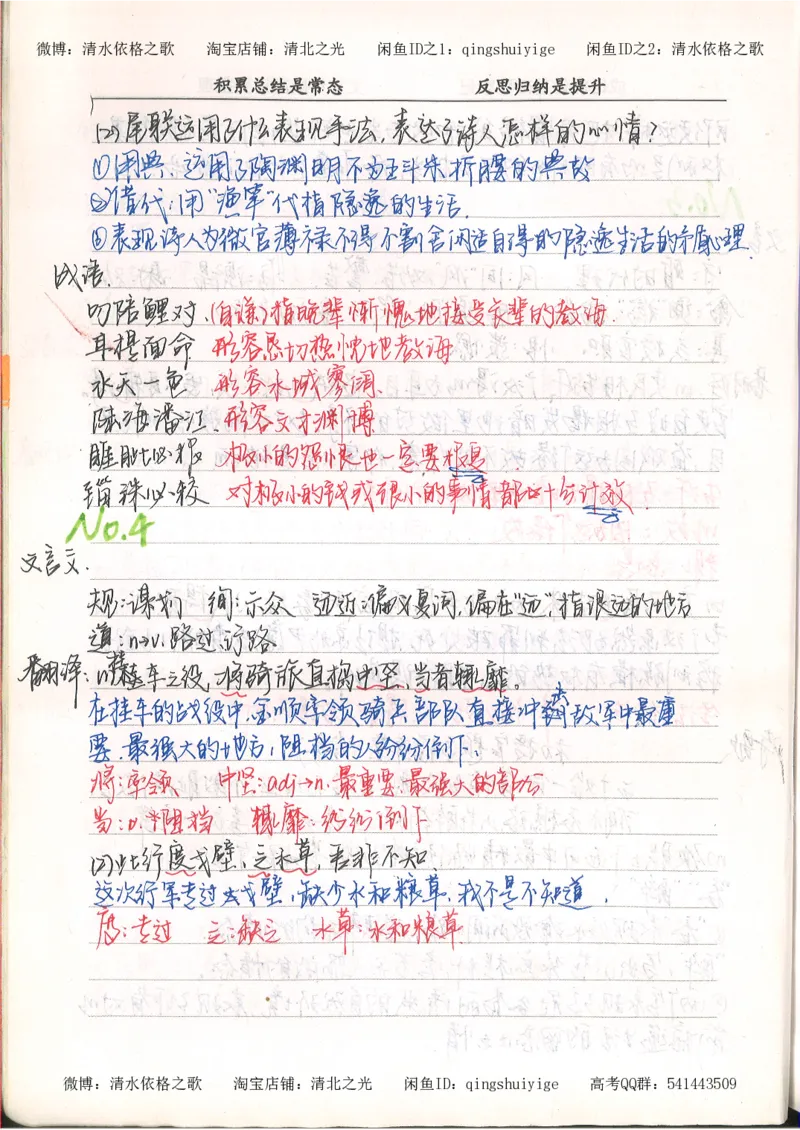 微博：清水依格之歌 淘宝店铺：清北之光 闲鱼ID之1：qingshuiyige 闲鱼ID之2：清水依格之歌
积累总结是常态 反思归纳是提升
(2)尾联运用了什么表现手法，表达了诗人怎样的心情？
①用典：运用了陶渊明不为五斗米折腰的典故
②借代：用“渔竿”代指隐逸的生活.
③表现诗人为微官薄禄不得不割舍闲适自得的隐逸生活的矛盾心理.
成语.
叨陪鲤对.(自谦)指晚辈惭愧地接受长辈的教诲.
耳提面命 形容恳切热忱地教诲
水天一色 形容水域寥阔.
陆海潘江.形容文才渊博
睚眦必报 极小的怨恨也一定要报息.
锱铢必较 对极小的钱或很小的事情都十分计较.
No.4
文言文.
规:谋划 徇:示众 远近:偏义复词,偏在“远”,指很远的地方
道:n→v.路过,行路
翻译:(1)挂车之役,将骑旅直捣中坚,当者辄靡。
在挂车的战役中,金顺率领骑兵部队直接冲去敌军中最重
要.最强大的地方,阻挡的人纷纷倒下.
将:率领 中坚:adj→n.最重要.最强大的部分
当:v.阻挡 辄靡:纷纷倒下
(2)此行度戈壁,乏水草,吾非不知
这次行军走过戈壁,缺少水和粮草,我不是不知道.
度:走过 乏:缺乏 水草:水和粮草.
微博：清水依格之歌 淘宝店铺：清北之光 闲鱼ID：qingshuiyige 高考QQ群：541443509